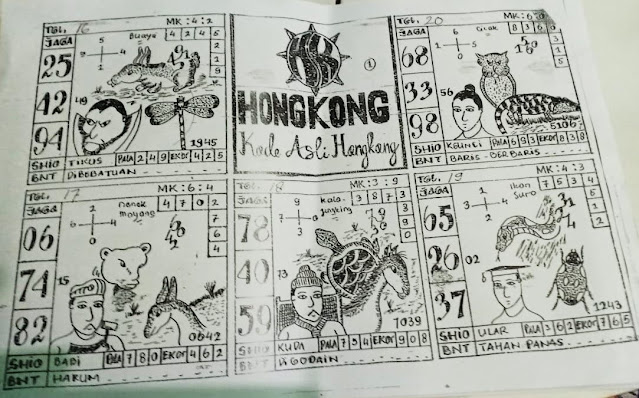 TGL. 16 MK : 4 : 2
JAGA Buaya 4 2 4 5
5
4 1
0
25
42
49
94
1945
SHIO TIKUS PALA 2 4 9 EKOR 4 2 5
BNT DIBEBATUAN
HK
1
HONGKONG
Kode Asli Hongkong
TGL. 20 MK : 6 : 0
JAGA 8 3 6 0
68
33
56
98
5106
SHIO KELINCI PALA 6 9 3 EKOR 8 3 8
BNT BARIS - BERBARIS
TGL. 17 MK : 6 : 4
JAGA Nenek moyang 4 7 0 2
2
6 4
0
7
6
4
06
74
15
82
0642
SHIO BABI PALA 7 8 0 EKOR 4 6 2
BNT HARUM
TGL. 18 MK : 3 : 9
JAGA Kala jengking 3 8 7 3
9
7 3
0
78
40
73
59
7039
SHIO KUDA PALA 7 3 4 EKOR 9 0 8
BNT DIGODAIN
TGL. 19 MK : 4 : 3
JAGA Ikan Suro 7 5 3 4
65
26
02
37
1243
SHIO ULAR PALA 3 6 2 EKOR 7 6 5
BNT TAHAN PANAS